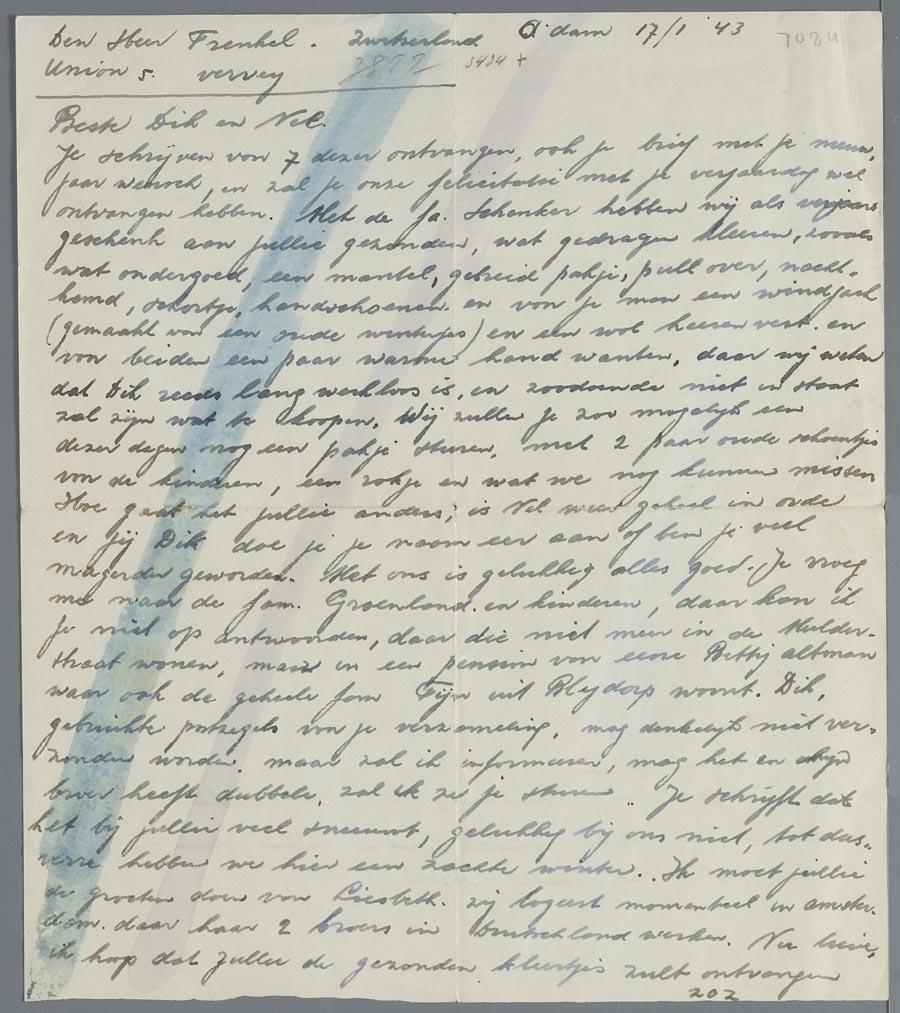 Den Heer Frenkel. Zwitserland A'dam 17/1 '43 7024
Union 5. vervey 2899 3434 +
Beste Dik en Nel.
Je schrijven van 7 dezer ontvangen, ook je brief met je nieuw,
jaar wensch, en zal je onze felicitatie met je verjaardag wel
ontvangen hebben. Met de fa. Schenker hebben wij als verjaars
geschenk aan jullie gezonden, wat gedragen kleeren, zooals
wat ondergoed, een mantel, gebreid pakje, pull over, nacht-
hemd, schortje, handschoenen en von je man een windjack
(gemaakt van een oude winterjas) en een wol heeren vest. en
voor beiden een paar warme hand wanten, daar wij weten
dat Dik reeds lang werkloos is, en zoodoende niet in staat
zal zijn wat te koopen. Wij zullen je zoo mogelijk een
dezer dagen nog een pakje sturen, met 2 paar oude schoentjes
van de kinderen, een rokje en wat we nog kunnen missen
Hoe gaat het jullie anders, is Nel weer geheel in orde
en jij Dik doe je je naam eer aan of ben je veel
magerder geworden. Met ons is gelukkig alles goed. Je vroeg
me naar de fam. Groenland. en kinderen, daar kan ik
je niet op antwoorden, daar die niet meer in de Mulder-
straat wonen, maar in een pension van eene Betty altman
waar ook de geheele fam Fijn uit Blydorp woont. Dik,
gebruikte postzegels van je verzameling, mag denkelijk niet ver-
zonden worden. maar zal ik informeeren, mag het en
broer heeft dubbele, zal ik ze je sturen Je schrijft dat
het bij jullie veel sneeuwt, gelukkig bij ons niet, tot dus-
verre hebben we hier een zachte winter. Ik moet jullie
de groeten doen van Liesbeth. zij logeert momenteel in amster-
dam. daar haar 2 broers in Deutschland werken. Nu lieve,
ik hoop dat jullie de gezonden kleertjes zult ontvangen
202